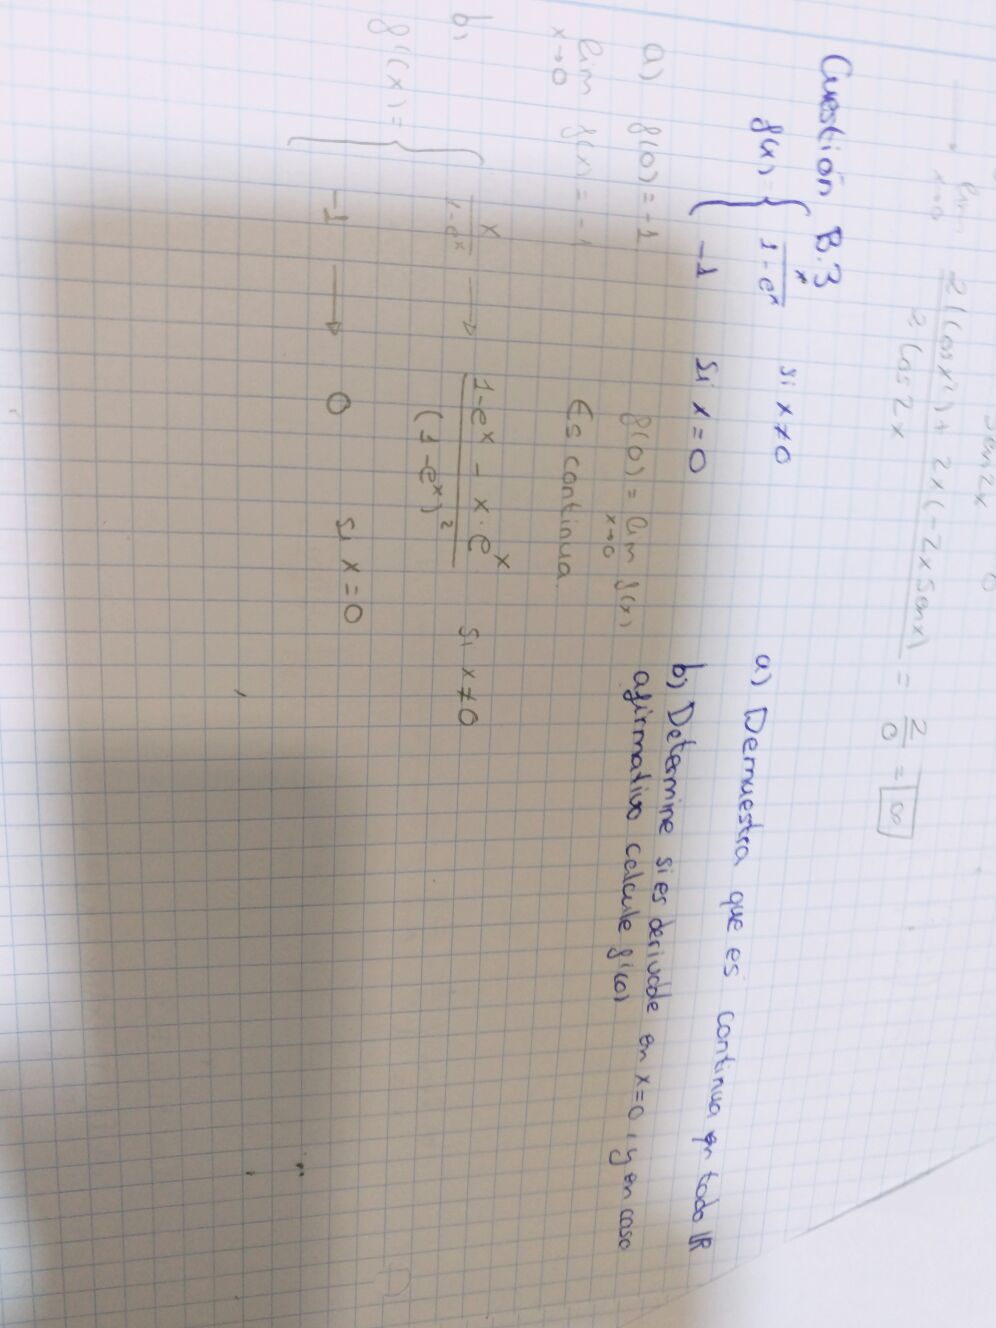 sen2x 0
lim 2(cosx²) + 2x(-2x senx) = 2 = ∞
x→0 2 cos 2x 0
Cuestión B.3
f(x) = { x / 1-eˣ si x ≠ 0
-1 si x = 0
a) Demuestra que es continua en todo ℝ
b) Determine si es derivable en x=0, y en caso
afirmativo calcule f'(0)
a) f(0) = -1 f(0) = lim f(x)
x→0
lim f(x) = -1 Es continua.
x→0
b)
f'(x) = { x / 1-eˣ → 1-eˣ - x·eˣ / (1-eˣ)² si x ≠ 0
-1 → 0 si x = 0